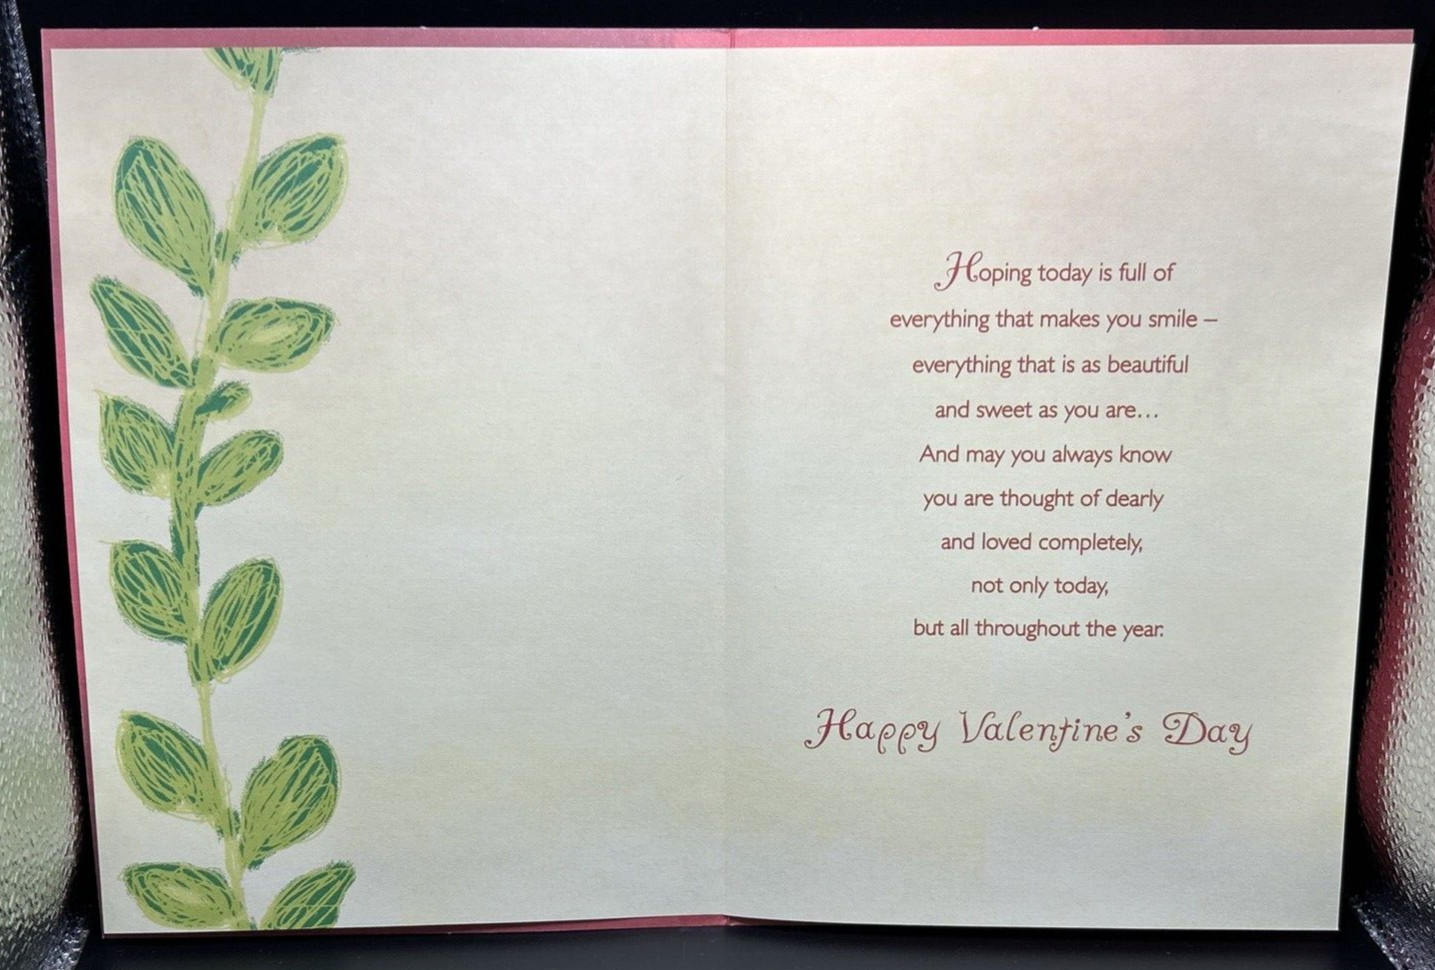 Hoping today is full of
everything that makes you smile –
everything that is as beautiful
and sweet as you are...
And may you always know
you are thought of dearly
and loved completely,
not only today,
but all throughout the year.
Happy Valentine's Day